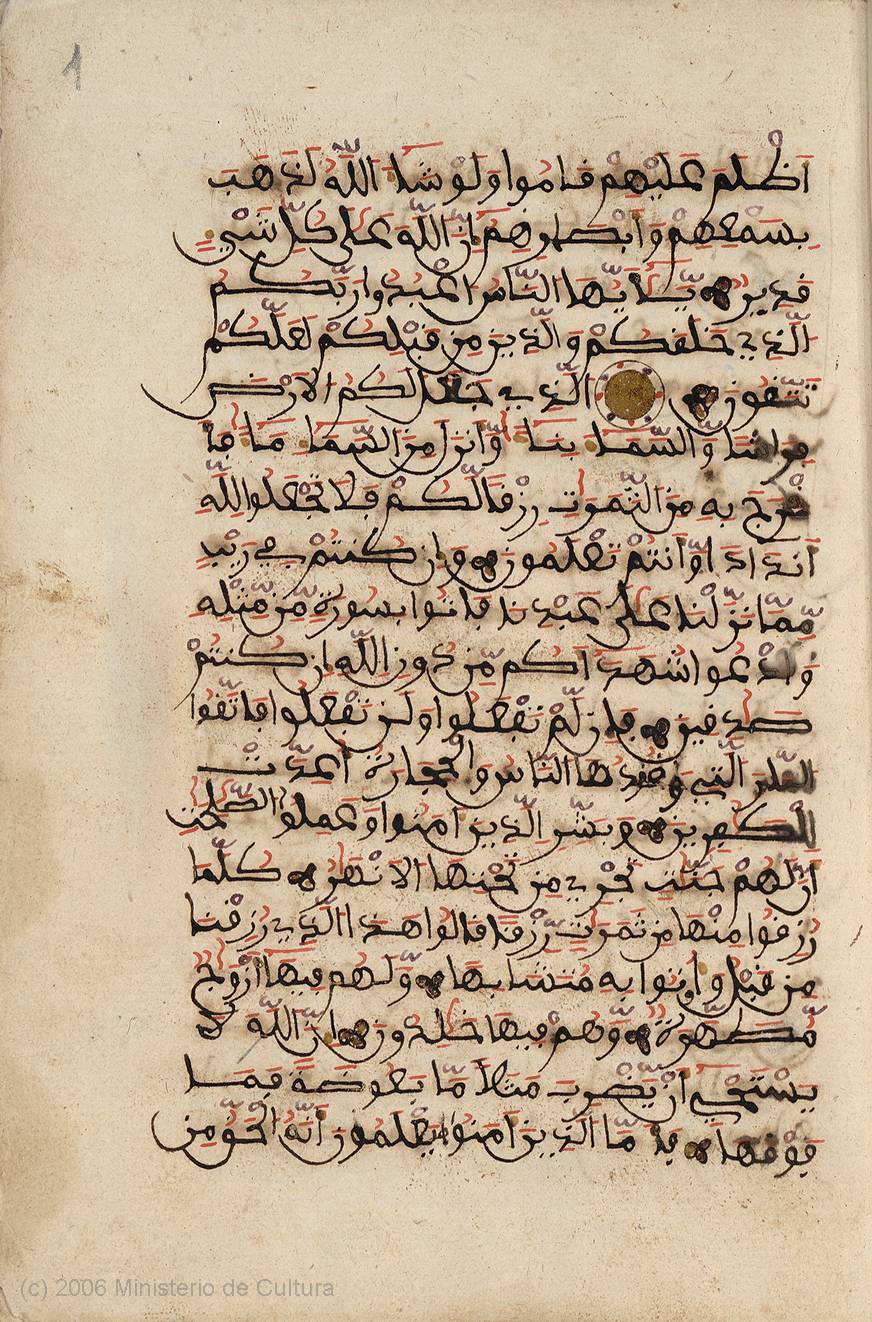 1
أظلم عليهم قاموا ولو شا الله لذهب
بسمعهم وأبصرهم إن الله على كل شيء
قدير يأيها الناس اعبدوا ربكم
الذي خلقكم والذين من قبلكم لعلكم
تتقون الذي جعل لكم الارض
فراشا والسما بنا وأنزل من السما ما فا
خرج به من الثمرت رزقا لكم فلا تجعلوا لله
أندادا وأنتم تعلمون وإن كنتم في ريب
مما نزلنا على عبدنا فاتوا بسورة من مثله
وادعوا شهداكم من دون الله إن كنتم
صدقين فإن لم تفعلوا ولن تفعلوا فاتقوا
النار التي وقودها الناس والحجارة أعدت
للكفرين وبشر الذين امنوا وعملوا الصلحت
أن لهم جنت تجري من تحتها الانهر كلما
رزقوا منها من ثمرة رزقا قالوا هذا الذي رزقنا
من قبل وأتوا به متشابها ولهم فيها أزوج
مطهرة وهم فيها خلدون إن الله لا
يستحي أن يضرب مثلا ما بعوضة فما
فوقها فأما الذين امنوا فيعلمون أنه الحق من
(c) 2006 Ministerio de Cultura